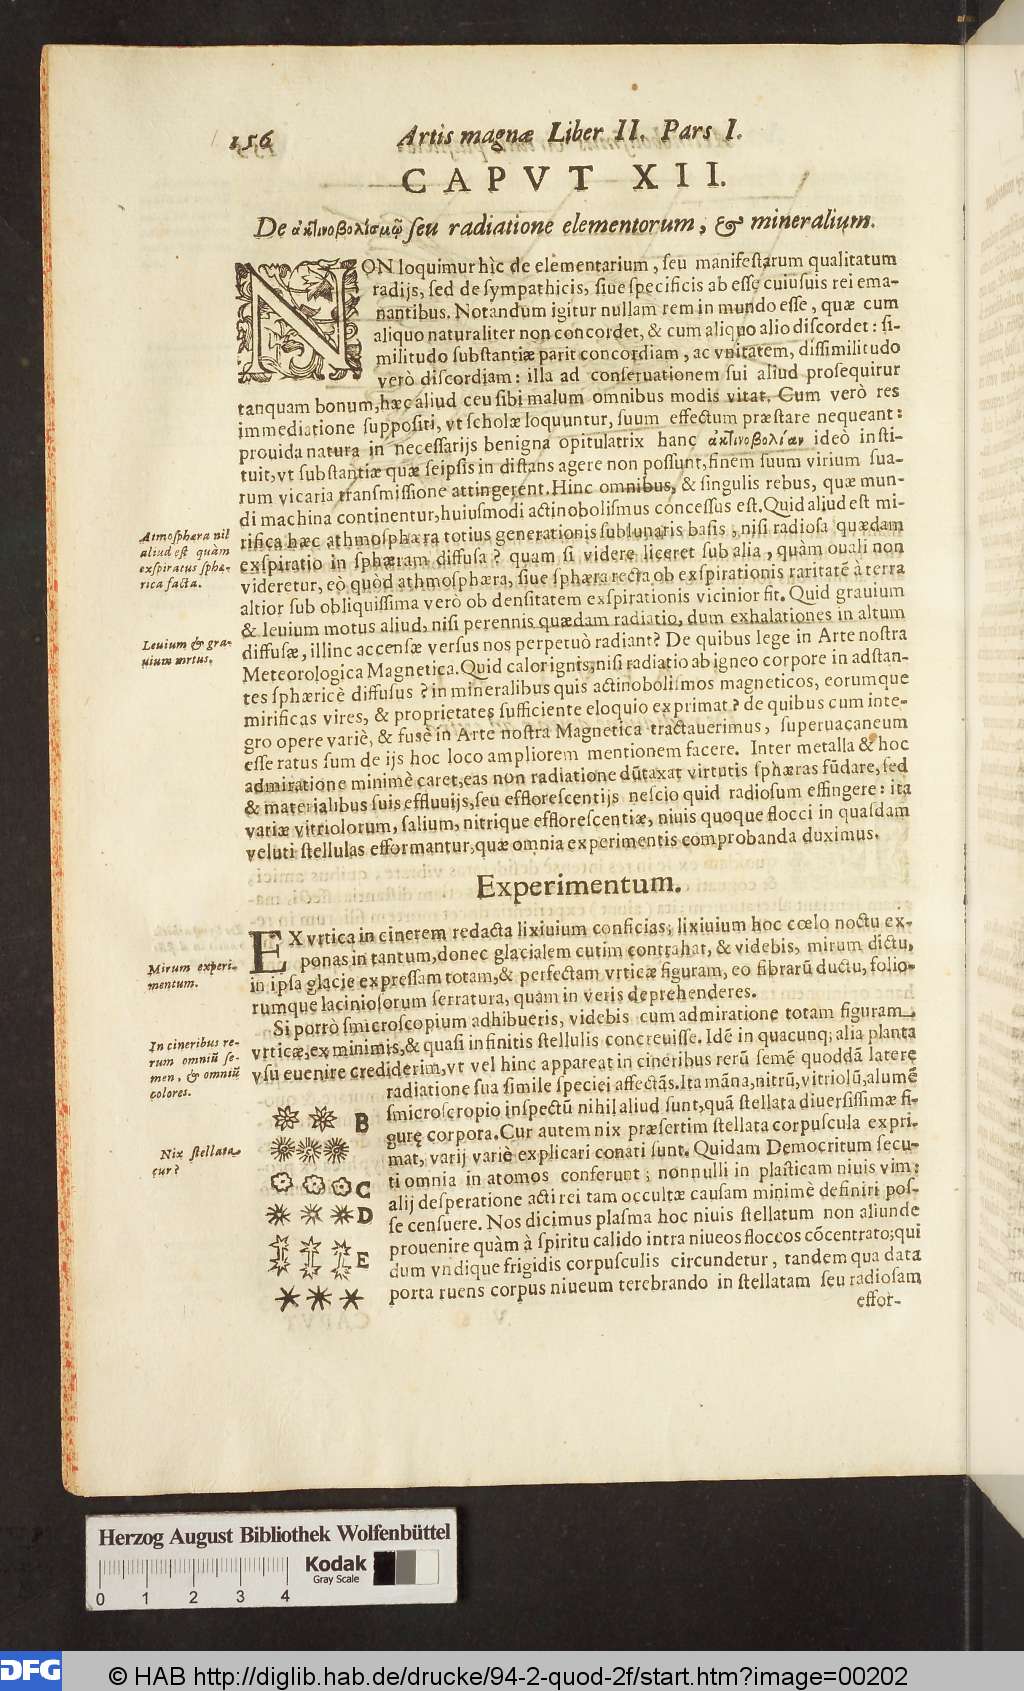 156
Artis magnæ Liber II. Pars I.
CAPVT XII.
De ἀκτινοβολίσμῳ seu radiatione elementorum, & mineralium.
NON loquimur hìc de elementarium, seu manifestarum qualitatum
radijs, sed de sympathicis, siue specificis ab esse cuiusuis rei ema-
nantibus. Notandum igitur nullam rem in mundo esse, quæ cum
aliquo naturaliter non concordet, & cum aliquo alio discordet: si-
militudo substantiæ parit concordiam, ac vnitatem, dissimilitudo
verò discordiam: illa ad conseruationem sui aliud prosequitur
tanquam bonum, hæc aliud ceu sibi malum omnibus modis vitat. Cum verò res
immediatione suppositi, vt scholæ loquuntur, suum effectum præstare nequeant:
prouida natura in necessarijs benigna opitulatrix hanc ἀκτινοβολίαν ideò insti-
tuit, vt substantiæ quæ seipsis in distans agere non possunt, finem suum virium sua-
rum vicaria transmissione attingerent. Hinc omnibus, & singulis rebus, quæ mun-
di machina continentur, huiusmodi actinobolismus concessus est. Quid aliud est mi-
rifica hæc athmosphæra totius generationis sublunaris basis, nisi radiosa quædam
exspiratio in sphæram diffusa? quam si videre liceret sub alia, quàm ouali non
videretur, eò quòd athmosphæra, siue sphæra recta ob exspirationis raritatẽ à terra
altior sub obliquissima verò ob densitatem exspirationis vicinior fit. Quid grauium
& leuium motus aliud, nisi perennis quædam radiatio, dum exhalationes in altum
diffusæ, illinc accensæ versus nos perpetuò radiant? De quibus lege in Arte nostra
Meteorologica Magnetica. Quid calor ignis, nisi radiatio ab igneo corpore in adstan-
tes sphæricè diffusus? in mineralibus quis actinobolismos magneticos, eorumque
mirificas vires, & proprietates sufficiente eloquio exprimat? de quibus cum inte-
gro opere variè, & fusè in Arte nostra Magnetica tractauerimus, superuacaneum
esse ratus sum de ijs hoc loco ampliorem mentionem facere. Inter metalla & hoc
admiratione minimè caret, eas non radiatione dũtaxat virtutis sphæras fũdare, sed
& materialibus suis effluuijs, seu efflorescentijs nescio quid radiosum effingere: ita
variæ vitriolorum, salium, nitrique efflorescentiæ, niuis quoque flocci in quasdam
veluti stellulas efformantur, quæ omnia experimentis comprobanda duximus.
Atmosphæra nil
aliud est quàm
exspiratus sphæ-
rica facta.
Leuium & gra-
uium motus.
Experimentum.
EX vrtica in cinerem redacta lixiuium conficias; lixiuium hoc cœlo noctu ex-
ponas in tantum, donec glacialem cutim contrahat, & videbis, mirum dictu,
in ipsa glacie expressam totam, & perfectam vrticæ figuram, eo fibrarũ ductu, folio-
rumque laciniosorum serratura, quàm in veris deprehenderes.
Mirum experi-
mentum.
Si porrò smicroscopium adhibueris, videbis cum admiratione totam figuram
vrticæ, ex minimis, & quasi infinitis stellulis concreuisse. Idẽ in quacunq; alia planta
vsu euenire crediderim, vt vel hinc appareat in cineribus rerũ semẽ quoddã laterę
radiatione sua simile speciei affectãs. Ita mãna, nitrũ, vitriolũ, alumẽ
smicroscopio inspectũ nihil aliud sunt, quã stellata diuersissimæ fi-
gurę corpora. Cur autem nix præsertim stellata corpuscula expri-
mat, varij variè explicari conati sunt. Quidam Democritum secu-
ti omnia in atomos conferunt; nonnulli in plasticam niuis vim:
alij desperatione acti rei tam occultæ causam minimè definiri pos-
se censuere. Nos dicimus plasma hoc niuis stellatum non aliunde
prouenire quàm à spiritu calido intra niueos floccos cõcentrato; qui
dum vndique frigidis corpusculis circundetur, tandem qua data
porta ruens corpus niueum terebrando in stellatam seu radiosam
effor-
In cineribus re-
rum omniũ se-
men, & omniũ
colores.
Nix stellata
cur?
B
C
D
E
Herzog August Bibliothek Wolfenbüttel
Kodak
Gray Scale
0 1 2 3 4
DFG
© HAB http://diglib.hab.de/drucke/94-2-quod-2f/start.htm?image=00202